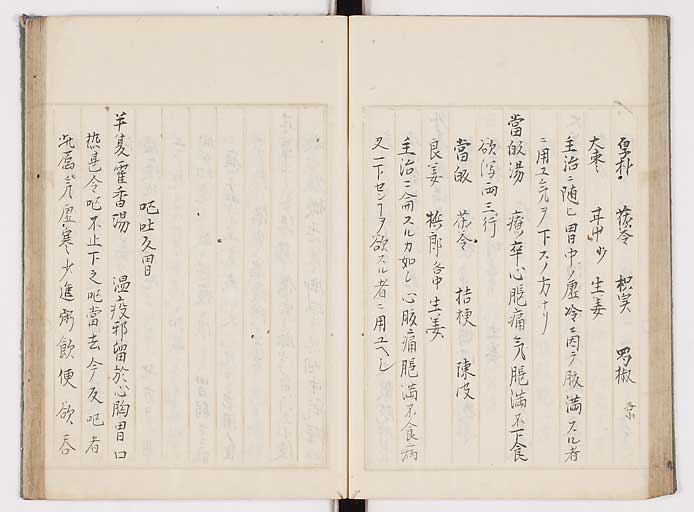 厚朴 茯苓 枳実 蜀椒
大棗 甘艸少 生姜
主治ニ随ヒ胃中ノ虚冷ニ因テ腹満スル者
ニ用ユ気ヲ下スノ方ナリ
當皈湯 療卒心腹痛気脹満不下食
欲瀉両三行
當皈 茯苓 桔梗 陳皮
良姜 檳郎各中 生姜
主治ニ侖スルカ如し心腹痛脹満不食病
又一下センヿヲ欲スル者ニ用ユヘし
呕吐久胃
半夏霍香湯 温疫邪留於心胸胃口
熱甚令呕不止下之呕當去今反呕者
此属胃气虚寒少進粥飲便欲吞